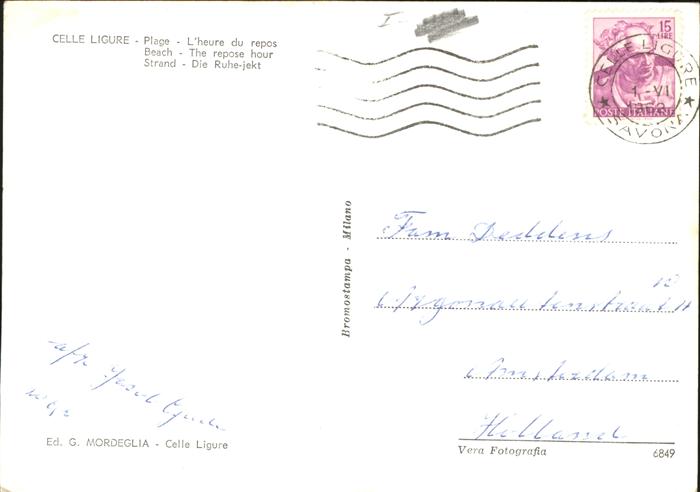 CELLE LIGURE - Plage - L'heure du repos
Beach - The repose hour
Strand - Die Ruhe-jekt
I -
15
LIRE
POSTE ITALIANE
CELLE LIGURE
1 - VI
SAVONA
Bromostampa - Milano
Fam Deddens
Amsterdam
Holland
afz
Ed. G. MORDEGLIA - Celle Ligure
Vera Fotografia
6849